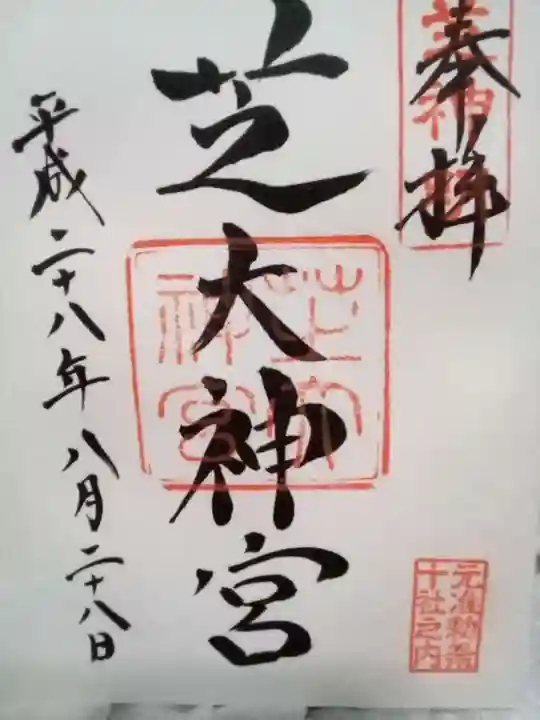 奉拝
芝大神宮
芝大神宮
平成二十八年八月二十八日
元准勅祭
十社之内